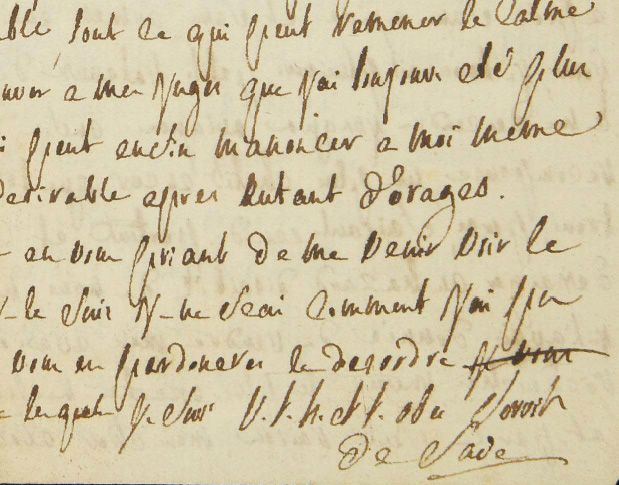 ble, tout ce qui peut ramener le calme
a mes juges que j'ai toujours eté plus
peut enfin m'anoncer a moi meme
desirable apres autant d'orages.
en vous priant de me venir voir le
je suis je ne scai comment j'ai pu
vous en pardonerés le desordre
lesquels je suis V. t. h. et t. ob. servit
de Sade